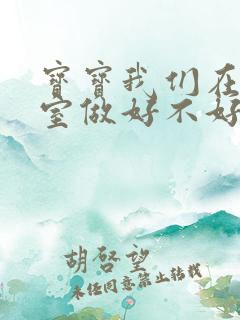 宝宝我们在
室做好不好
胡啓望
未经同意禁止转载